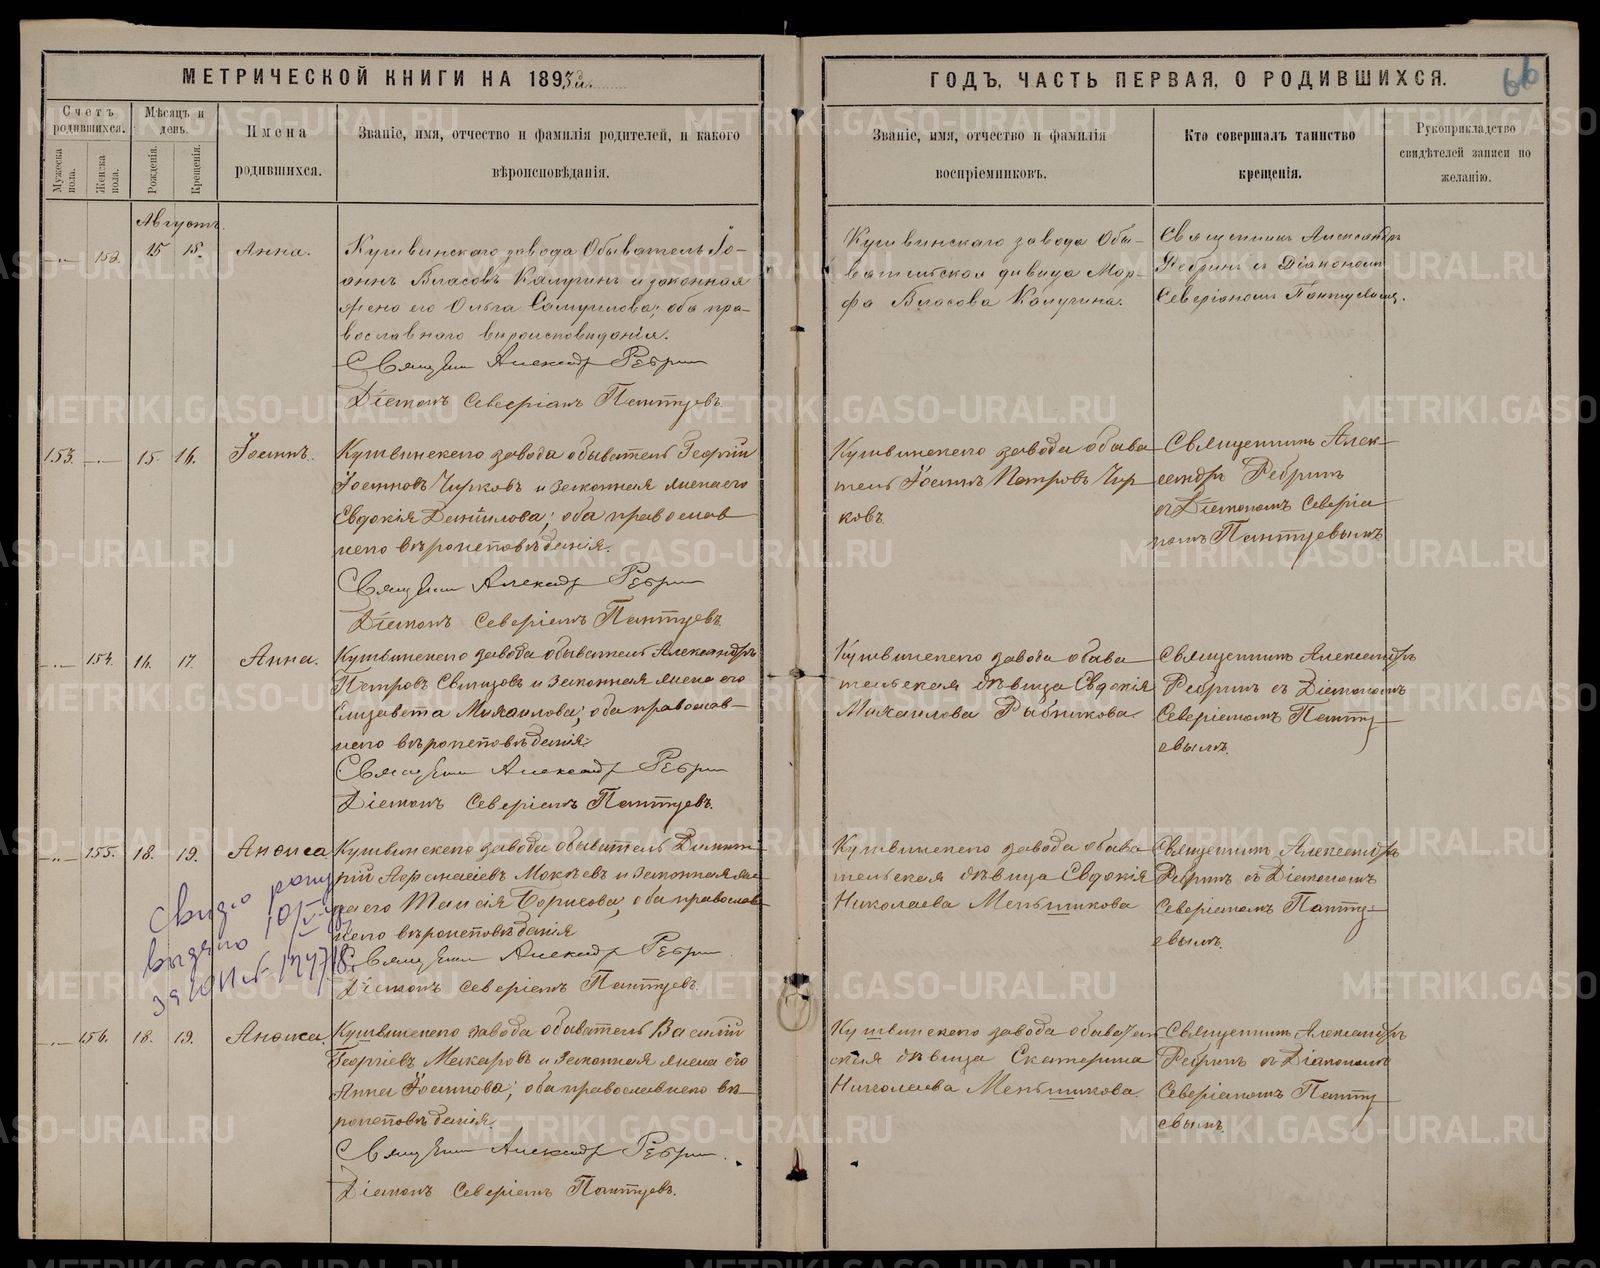 МЕТРИЧЕСКОЙ КНИГИ НА 1893й
ГОДЪ, ЧАСТЬ ПЕРВАЯ, О РОДИВШИХСЯ.
66
Счетъ родившихся.
Мужеска пола.
Женска пола.
Мѣсяцъ и день.
Рожденія.
Крещенія.
Имена
родившихся.
Званіе, имя, отчество и фамилія родителей, и какого
вѣроисповѣданія.
Званіе, имя, отчество и фамилія
воспріемниковъ.
Кто совершалъ таинство
крещенія.
Рукоприкладство
свидѣтелей записи по
желанію.
Августъ.
152. 15 15. Анна.
Кушвинскаго завода Обыватель Іо-
аннъ Власовъ Калугинъ и законная
жена его Ольга Самуилова; оба пра-
вославнаго вѣроисповѣданія.
Священ Александр Ребрин
Діаконъ Северіанъ Пантуевъ.
Кушвинскаго завода Обы-
вательская дѣвица Мар-
фа Власова Калугина.
Священникъ Александръ
Ребринъ съ Діакономъ
Северіаном
153. 15. 16. Іоаннъ.
Кушвинскаго завода обыватель Георгій
Іоанновъ Чирковъ и законная жена его
Евдокія Данилова; оба православ
наго вѣроисповѣданія.
Священ Александр Ребрин
Діаконъ Северіанъ Пантуевъ.
Кушвинскаго завода обыва
тель Іоаннъ Петровъ Чир
ковъ.
Священникъ Алек-
сандръ Ребринъ
съ Діакономъ Северіа
номъ Пантуевымъ
154. 16. 17. Анна.
Кушвинскаго завода обыватель Александръ
Петровъ и законная жена его
Елизавета Михаилова; оба православ-
наго вѣроисповѣданія.
Священ Александр Ребрин
Діаконъ Северіанъ Пантуевъ.
Кушвинскаго завода обыва
тельская дѣвица Евдокія
Михаилова Рыбникова
Священникъ Александръ
Ребринъ съ Діакономъ
Северіаномъ Панту-
евымъ.
155. 18. 19. Анѳиса
Кушвинскаго завода обыватель Димит-
рій Аѳанасіевъ Мокѣевъ и законная же-
на его Таисія Борисова; оба православ-
наго вѣроисповѣданія
Священ Александр Ребрин.
Діаконъ Северіанъ Пантуевъ.
Кушвинскаго завода обыва
тельская дѣвица Евдокія
Николаева Меньшикова
Священникъ Александръ
Ребринъ съ Діакономъ
Северіаномъ Панту-
евымъ.
выдано
156. 18. 19. Анѳиса.
Кушвинскаго завода обыватель Василій
Георгіевъ Макаровъ и законная жена его
Анна Іоаннова; оба православнаго вѣ-
роисповѣданія.
Священ Александр Ребрин.
Діаконъ Северіанъ Пантуевъ.
Кушвинскаго завода обыватель
ская дѣвица Екатерина
Николаева Меньшикова.
Священникъ Александръ
Ребринъ съ Діакономъ
Северіаномъ Панту-
евымъ.
METRIKI.GASO-URAL.RU